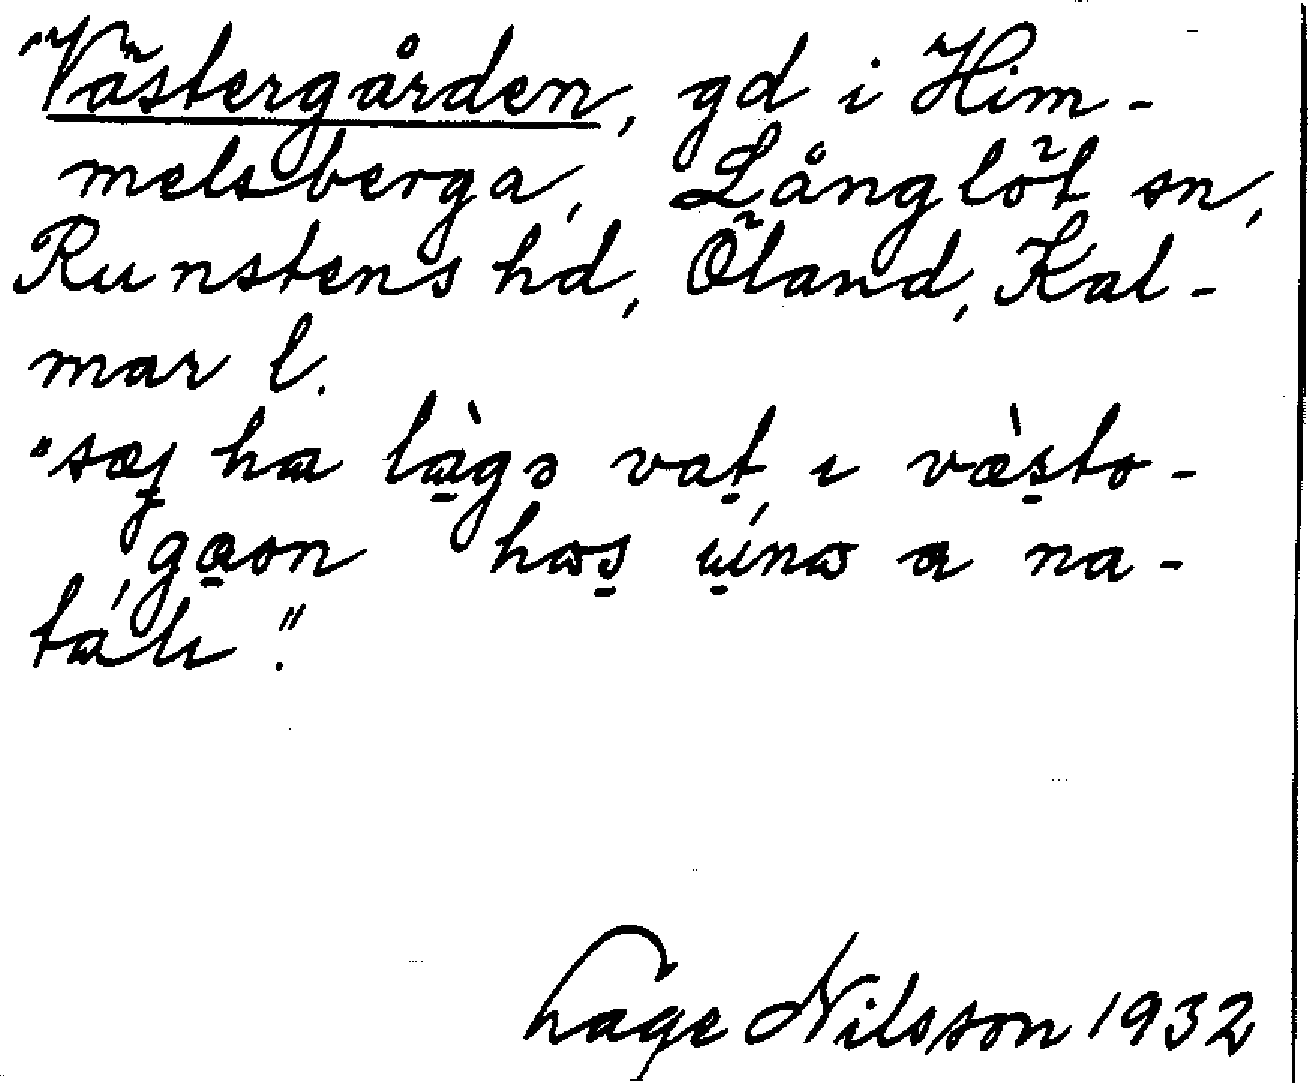 "Västergården, gd i Him-
melsberga, Långlöt sn,
Runstens hd, Öland, Kal-
mar l.
"sæj ha làgə vat ı væ̀sto-
gaon hos úına a na-
táli."
Lage Nilsson 1932